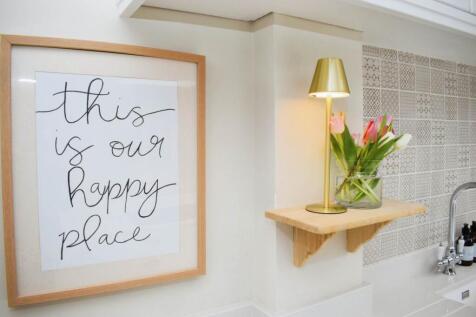 this
is our
happy
place